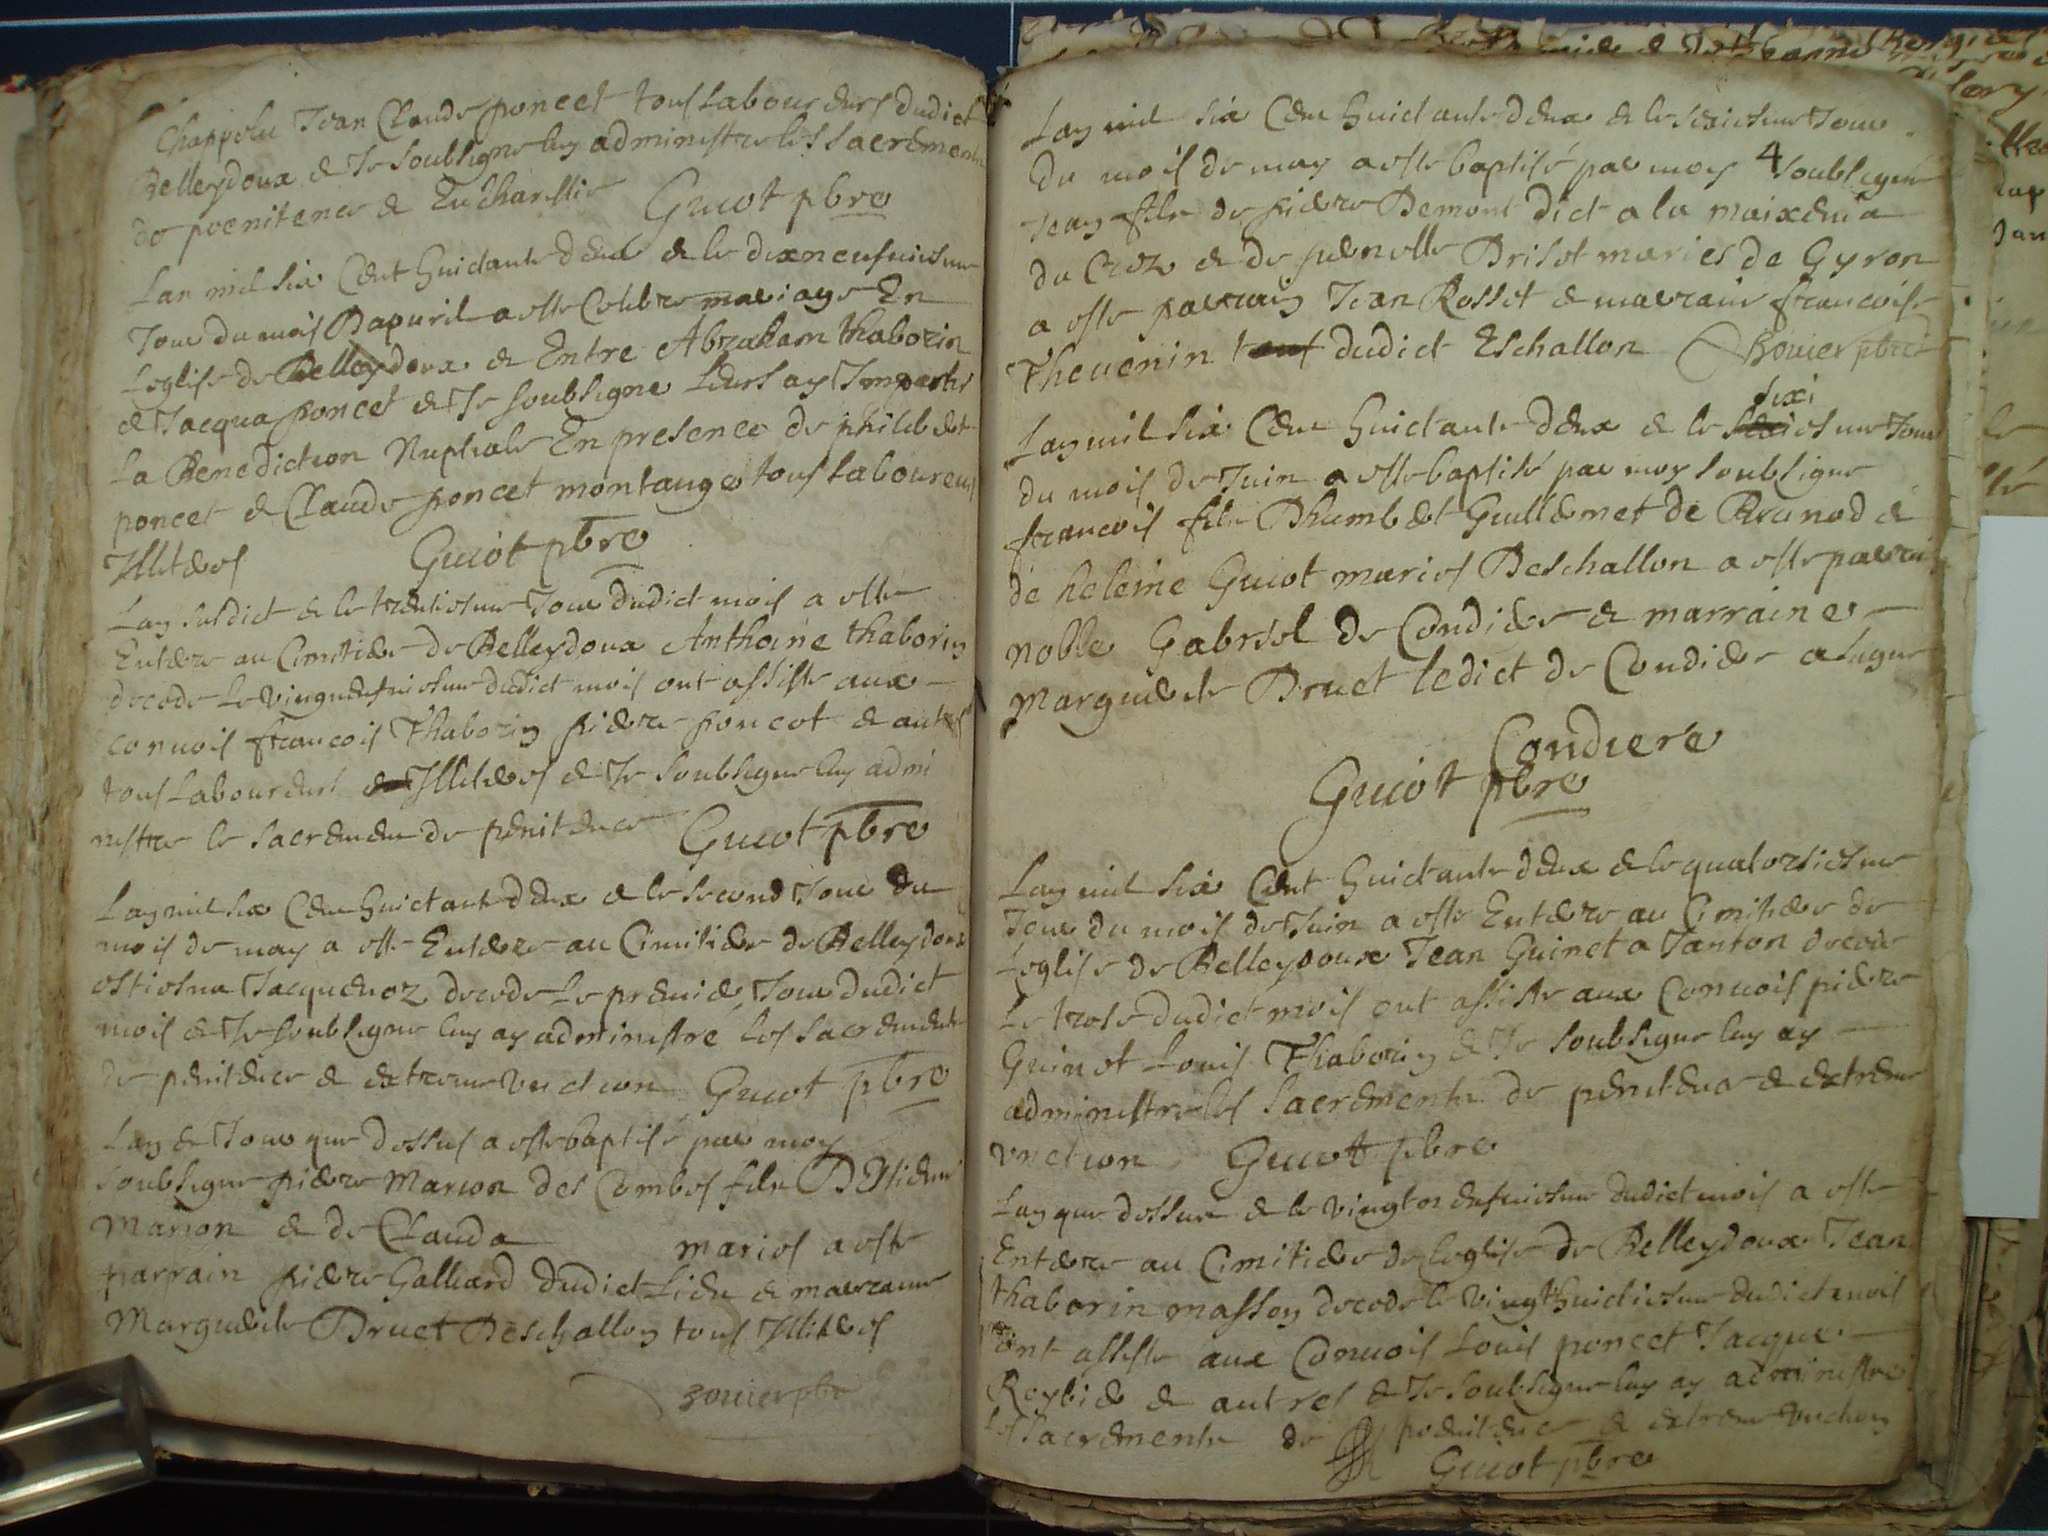 Chappelu Jean Claude poncet tous Laboureurs dudict
Belleydoux & Je soubsigne luy administre les Sacrements
de poenitence & Eucharistie Guiot pbre
Lan mil six Cent huictante deux & le dixneufuiesme
Jour du mois Dapuril a esté Celebre mariage En
Leglise de Belleydoux & Entre Abraham thaborin
& Jacqua poncet & Je soubsigne Leurs ay Imparti
La Benediction Nuptiale En presence de philibert
poncet & Claude poncet montange tous Laboureurs
Illiteres Guiot pbre
Lan susdict & le trentiesme Jour dudict mois a esté
Enterre au Cimitiere de Belleydoux Anthoine thaborin
decede le vingneufuiesme dudict mois ont assisté aux
conuois francois Thaborin pierre poncet & autres
tous Laboureurs Illiteres & Je soubsigne luy admi
nistre le sacrement de penitence Guiot pbre
Lan mil six Cent huictante deux & le second Jour du
mois de may a esté Enterre au Cimitiere de Belleydoux
estiesna Jacquenoz decede le premier Jour dudict
mois & Je soubsigne luy ay administre les sacrements
de penitence & extreme vnction Guiot pbre
Lan & Jour que dessus a esté baptisé par moy
soubsigne pierre Marion des Combes fils DEstieni
Marion & de Clauda maries a esté
parrain pierre Galliard dudict Lieu & marraine
Marguerite Druet Deschallon tous Illiteres
Bouier pbre
Lan mil six Cent huictante deux & le seziesme Jour
du mois de may a esté baptisé par moy 4 soubsigné
Jean fils de pierre Demont dict a la maixenia
du Croz & de pernette Brisot maries de Gyron
a esté parrain Jean Rosset & marraine francoise
Theuenin tous dudict Eschallon Bouier pbre
sixi
Lan mil six Cent huictante deux & le sixiesme Jour
du mois de Juin a esté baptisé par moy soubsigne
francois fils Dhumbert Guillermet de Brenod &
de heleine Guiot maries Deschallon a esté parrain
noble Gabriel de Condiere & marraine
Marguerite Druet ledict de Condiere a signe
Condiere
Guiot pbre
Lan mil six Cent huictante deux & le quatorziesme
Jour du mois de Juin a esté Enterre au Cimitiere de
Leglise de Belleydoux Jean Guinet a Tanton decede
Le treze dudict mois ont assisté aux Conuois pierre
Guinet Louis Thaborin & Je soubsigne luy ay
administre les sacrements de penitence & extreme
vnction Guiot pbre
Lan que dessus & le vingtneufuiesme dudict mois a esté
Enterre au Cimitiere de leglise de Belleydoux Jean
thaborin masson decede le vingthuictiesme dudict mois
ont assisté aux Conuois Louis poncet Jacque
Reybier & autres & Je soubsigne luy ay administré
les sacrements de poenitence & extreme vnction
Guiot pbre